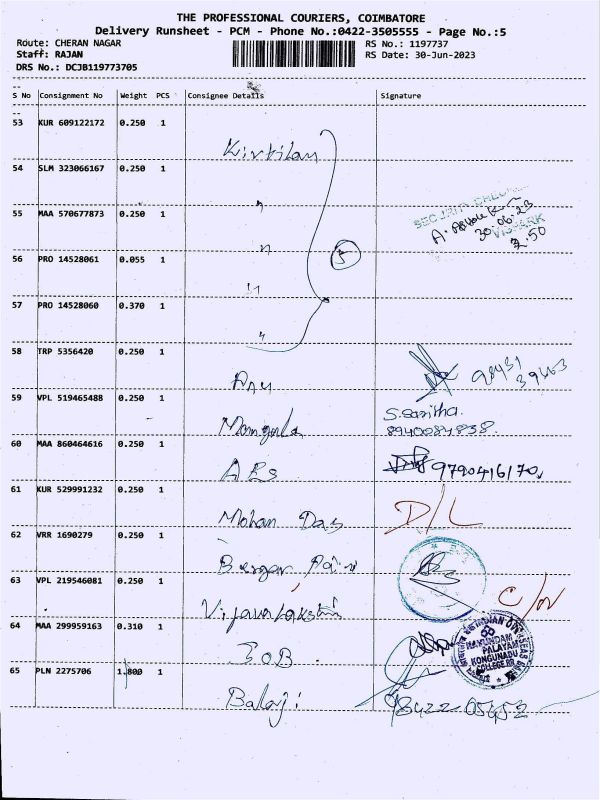 THE PROFESSIONAL COURIERS, COIMBATORE
Delivery Runsheet - PCM - Phone No.:0422-3505555 - Page No.:5
Route: CHERAN NAGAR
RS No.: 1197737
Staff: RAJAN
RS Date: 30-Jun-2023
DRS No.: DCJB119773705
S No Consignment No Weight PCS Consignee Details Signature
53 KUR 609122172 0.250 1
54 SLM 323066167 0.250 1
55 MAA 570677873 0.250 1
30.06.23
2.50
56 PRO 14528061 0.055 1
5
57 PRO 14528060 0.370 1
58 TRP 5356420 0.250 1
59 VPL 519465488 0.250 1
S. Saritha.
8940084838.
60 MAA 860464616 0.250 1
9790416170
61 KUR 529991232 0.250 1
Mohan Das D/L
62 VRR 1690279 0.250 1
63 VPL 219546081 0.250 1
64 MAA 299959163 0.310 1
IOB
KAVUNDAM
PALAYAM
KONGUNADU
COLLEGE BR
65 PLN 2275706 1.800 1
Balaji
98422-05652